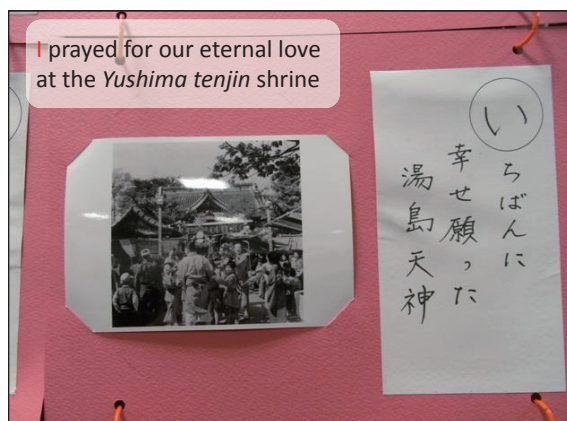 I prayed for our eternal love
at the Yushima tenjin shrine
いちばんに
幸せ願った
湯島天神